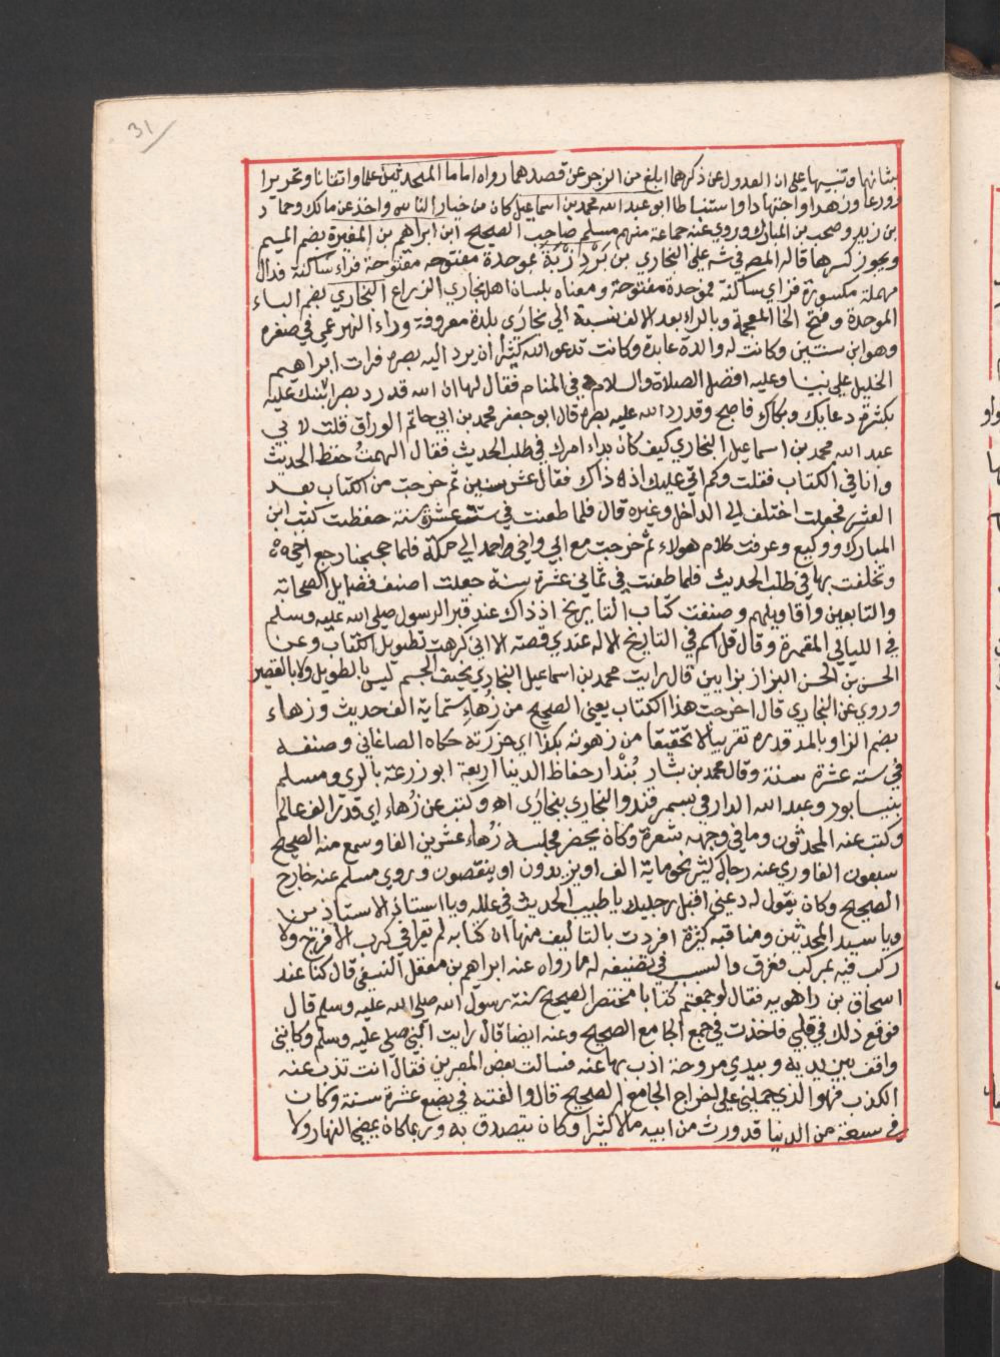 31
بشانها وتنبيها على ان العدول عن ذكرهما ابلغ من الزجر عن قصدهما رواه اماما المحدثين علما واتقانا وتحريرا
وورعا وزهدا واجتهادا واستنباطا ابو عبد الله محمد بن اسماعيل كان من خيار الناس واخذ عن مالك وحماد
بن زيد وصحب بن المبارك وروي عنه جماعة منهم مسلم صاحب الصحيح ابن ابراهيم بن المغيرة بضم الميم
ويجوز كسرها قاله المص في شه على البخاري بن بَرْدِزْبَة بموحدة مفتوحه مفتوحة فراء ساكنة فدال
مهملة مكسورة فزاي ساكنة فموحدة مفتوحة ومعناه بلسان اهل بخاري الزراع البخاري بضم الباء
الموحدة وفتح الخا المعجمة وبالراء بعد الالف نسبة الي بخارى بلدة معروفة وراء النهر عمي في صغره
وهو ابن سنتين وكانت له والدة عابدة وكانت تدعو الله كثيرا أن يرد اليه بصره فرات ابراهيم
الخليل على نبينا وعليه افضل الصلاة والسلام في المنام فقال لها ان الله قد رد بصر ابنك عليه
بكثرة دعايك وبكاك فاصبح وقد رد الله عليه بصره قال ابو جعفر محمد بن ابي حاتم الوراق قلت لابي
عبد الله محمد بن اسماعيل البخاري كيف كان بداء امرك في طلب الحديث فقال الهمتُ حفظ الحديث
وانا في الكتاب فقلت وكم اتي عليك اذ ذاك فقال عشر سنين ثم خرجت من الكتاب بعد
العشر فجعلت اختلف الي الداخل وغيره قال فلما طعنت في ستة عشرة سنة حفظت كتب ابن
المبارك ووكيع وعرفت كلام هولاء ثم خرجت مع ابي واخي احمد الي مكة فلما حججنا رجع اخي
وتخلفت بها في طلب الحديث فلما طعنت في ثماني عشرة سنة جعلت اصنف فضايل الصحابة
والتابعين وأقاويلهم وصنفت كتاب التاريخ اذ ذاك عند قبر الرسول صلى الله عليه وسلم
في الليالي المقمرة وقال قل اسم في التاريخ الا له عندي قصة الا اني كرهت تطويل الكتاب وعن
الحسن بن الحسن البزاز بزايين قال رايت محمد بن اسماعيل البخاري نحيف الجسم ليس بالطويل ولا بالقصير
وروي عن البخاري قال اخرجت هذا الكتاب يعني الصحيح من زُهاءِ ستماية الف حديث وزهاء
بضم الزا وبالمد قدره تقريبا لا تحقيقا من زهوته بكذا اي حزرته حكاه الصاغاني وصنفه
في سته عشرة سنة وقال محمد بن بشار بُنْدار حفاظ الدنيا اربعة ابو زرعة بالري ومسلم
بنيسابور وعبد الله الدارمي بسمرقند والبخاري ببخارى اه وكتب عن زُهاء اي قدر الف عالم
وكتب عنه المحدثون وما في وجهه شعرة وكان يحضر مجلسه زُهاء عشرين الفا وسمع منه الصحيح
سبعون الفا وروي عنه رجال كثير نحو ماية الف او يزيدون او ينقصون وروى مسلم عنه خارج
الصحيح وكان يقول له دعني اقبل رجليك يا طبيب الحديث في علله ويا استاذ الاستاذين
ويا سيد المحدثين ومناقبه كثيرة افردت بالتاليف منها ان كتابه لم يقرا في كرب الا فرج ولا
ركب فيه بمركب فغرق والسبب في تصنيفه له ما رواه عنه ابراهيم بن معقل النسفي قال كنا عند
اسحاق بن راهويه فقال لو جمعتم كتابا مختصرا لصحيح سنة رسول الله صلى الله عليه وسلم قال
فوقع ذلك في قلبي فاخذت في جمع الجامع الصحيح وعنه ايضا قال رايت النبي صلى عليه وسلم وكانني
واقف بين يديه وبيدي مروحة اذب بها عنه فسالت بعض المعبرين فقال انت تذب عنه
الكذب فهو الذي حملني على اخراج الجامع الصحيح قال والفته في بضع عشرة سنة وكان
في سعة من الدنيا قد ورث من ابيه مالا كثيرا وكان يتصدق به وربما كان يمضي النهار ولا